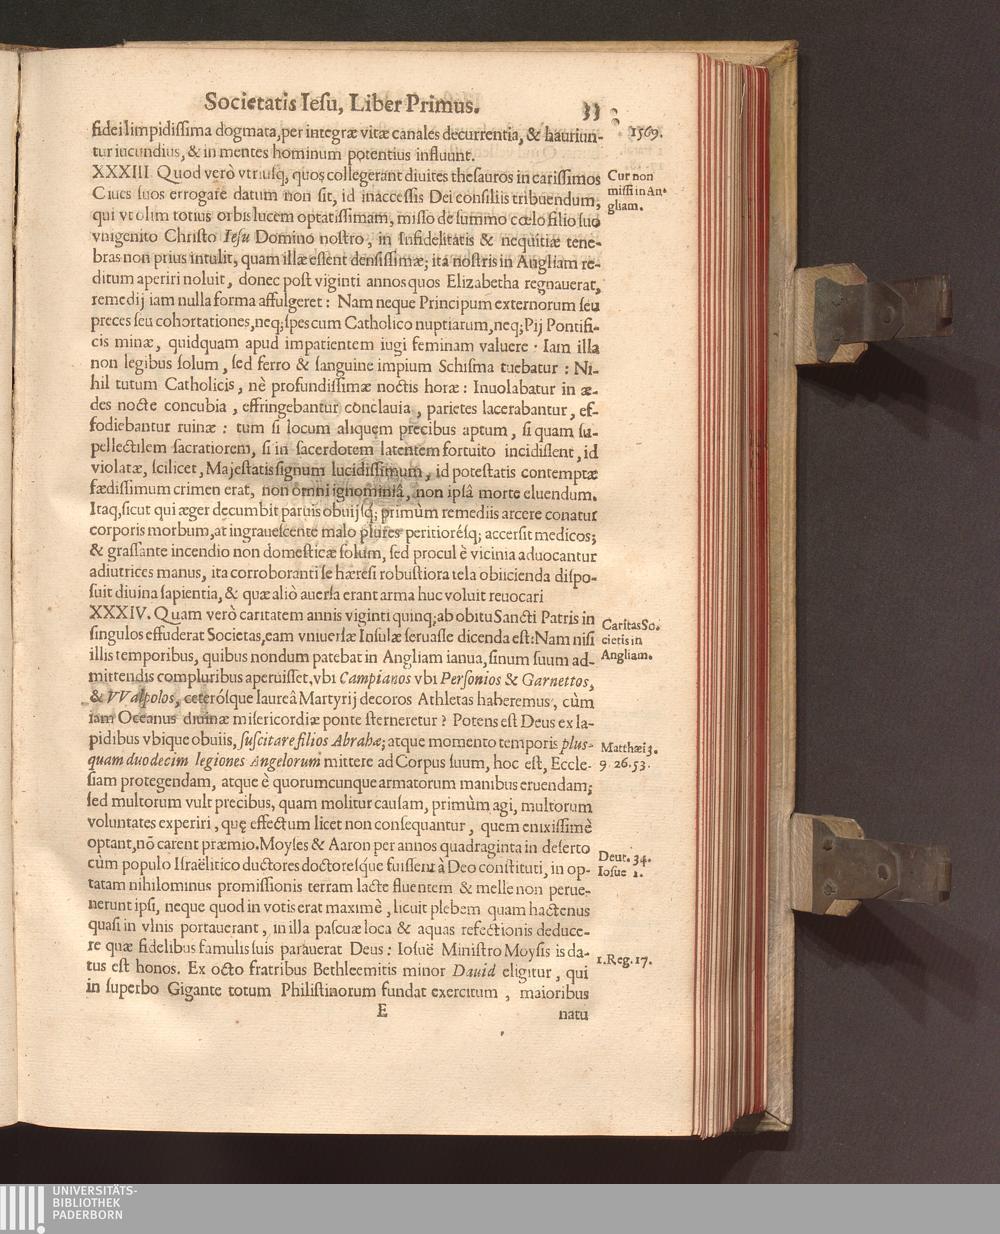 Societatis Iesu, Liber Primus. 33
fidei limpidissima dogmata, per integræ vitæ canales decurrentia, & hauriun- 1569.
tur iucundius, & in mentes hominum potentius influunt.
XXXIII Quod verò vtriusq; quos collegerant diuites thesauros in carissimos Cur non
Ciues suos errogare datum non sit, id inaccessis Dei consiliis tribuendum, missi in An-
qui vt olim totius orbis lucem optatissimam, misso de summo cœlo filio suo gliam.
vnigenito Christo Iesu Domino nostro, in Infidelitatis & nequitiæ tene-
bras non prius intulit, quam illæ essent densissimæ; ita nostris in Angliam re-
ditum aperiri noluit, donec post viginti annos quos Elizabetha regnauerat,
remedij iam nulla forma affulgeret: Nam neque Principum externorum seu
preces seu cohortationes, neq; spes cum Catholico nuptiarum, neq; Pij Pontifi-
cis minæ, quidquam apud impatientem iugi feminam valuere. Iam illa
non legibus solum, sed ferro & sanguine impium Schisma tuebatur: Ni-
hil tutum Catholicis, nè profundissimæ noctis horæ: Inuolabatur in æ-
des nocte concubia, effringebantur conclauia, parietes lacerabantur, ef-
fodiebantur ruinæ: tum si locum aliquem precibus aptum, si quam su-
pellectilem sacratiorem, si in sacerdotem latentem fortuito incidissent, id
violatæ, scilicet, Majestatis signum lucidissimum, id potestatis contemptæ
fædissimum crimen erat, non omni ignominiâ, non ipsâ morte eluendum.
Itaq, sicut qui æger decumbit paruis obuijsq; primùm remediis arcere conatur
corporis morbum, at ingrauescente malo plures peritiorésq; accersit medicos;
& grassante incendio non domesticæ solum, sed procul è vicinia aduocantur
adiutrices manus, ita corroboranti se hæresi robustiora tela obiicienda dispo-
suit diuina sapientia, & quæ aliò auersa erant arma huc voluit reuocari
XXXIV. Quam verò caritatem annis viginti quinq; ab obitu Sancti Patris in Caritas So-
singulos effuderat Societas, eam vniuersæ Insulæ seruasse dicenda est: Nam nisi cietis in
illis temporibus, quibus nondum patebat in Angliam ianua, sinum suum ad- Angliam.
mittendis compluribus aperuisset, vbi Campianos vbi Personios & Garnettos,
& VValpolos, ceterósque laureâ Martyrij decoros Athletas haberemus, cùm
iam Oceanus diuinæ misericordiæ ponte sterneretur? Potens est Deus ex la-
pidibus vbique obuiis, suscitare filios Abrahæ; atque momento temporis plus- Matthæi 3.
quam duodecim legiones Angelorum mittere ad Corpus suum, hoc est, Eccle- 9 26. 53.
siam protegendam, atque è quorumcunque armatorum manibus eruendam;
sed multorum vult precibus, quam molitur causam, primùm agi, multorum
voluntates experiri, quę effectum licet non consequantur, quem enixissimè
optant, nō carent præmio. Moyses & Aaron per annos quadraginta in deserto
cùm populo Israëlitico ductores doctoresque fuissent à Deo constituti, in op- Deut. 34.
tatam nihilominus promissionis terram lacte fluentem & melle non perue- Iosue 1.
nerunt ipsi, neque quod in votis erat maximè, licuit plebem quam hactenus
quasi in vlnis portauerant, in illa pascuæ loca & aquas refectionis deduce-
re quæ fidelibus famulis suis parauerat Deus: Iosuë Ministro Moysis is da-
tus est honos. Ex octo fratribus Bethleemitis minor Dauid eligitur, qui 1. Reg. 17.
in superbo Gigante totum Philistinorum fundat exercitum, maioribus
E natu
UNIVERSITÄTS-
BIBLIOTHEK
PADERBORN